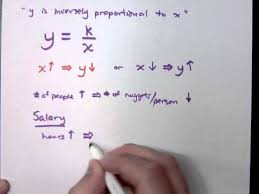 "y is inversely proportional to x"
y = k/x
x↑ ⇒ y↓ or x↓ ⇒ y↑
# of people ↑ ⇒ # of nuggets/person ↓
Salary
hours ↑ ⇒